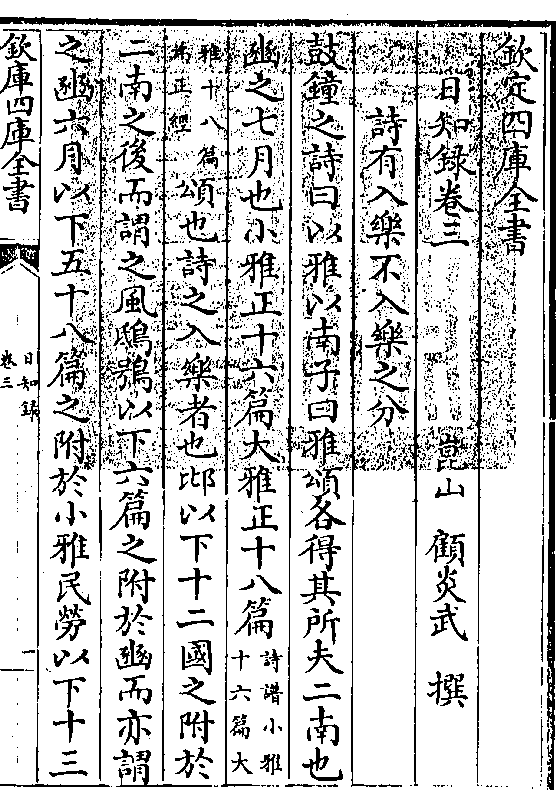 欽定四庫全書
日知録卷三
崑山 顧炎武 撰
詩有入樂不入樂之分
鼓鐘之詩曰以雅以南子曰雅頌各得其所夫二南也
豳之七月也小雅正十六篇大雅正十八篇詩譜小雅十六篇大
雅十八篇為正經頌也詩之入樂者也邶以下十二國之附於
二南之後而謂之風鴟鴞以下六篇之附於豳而亦謂
之豳六月以下五十八篇之附於小雅民勞以下十三
欽定四庫全書
日知録
卷三
一